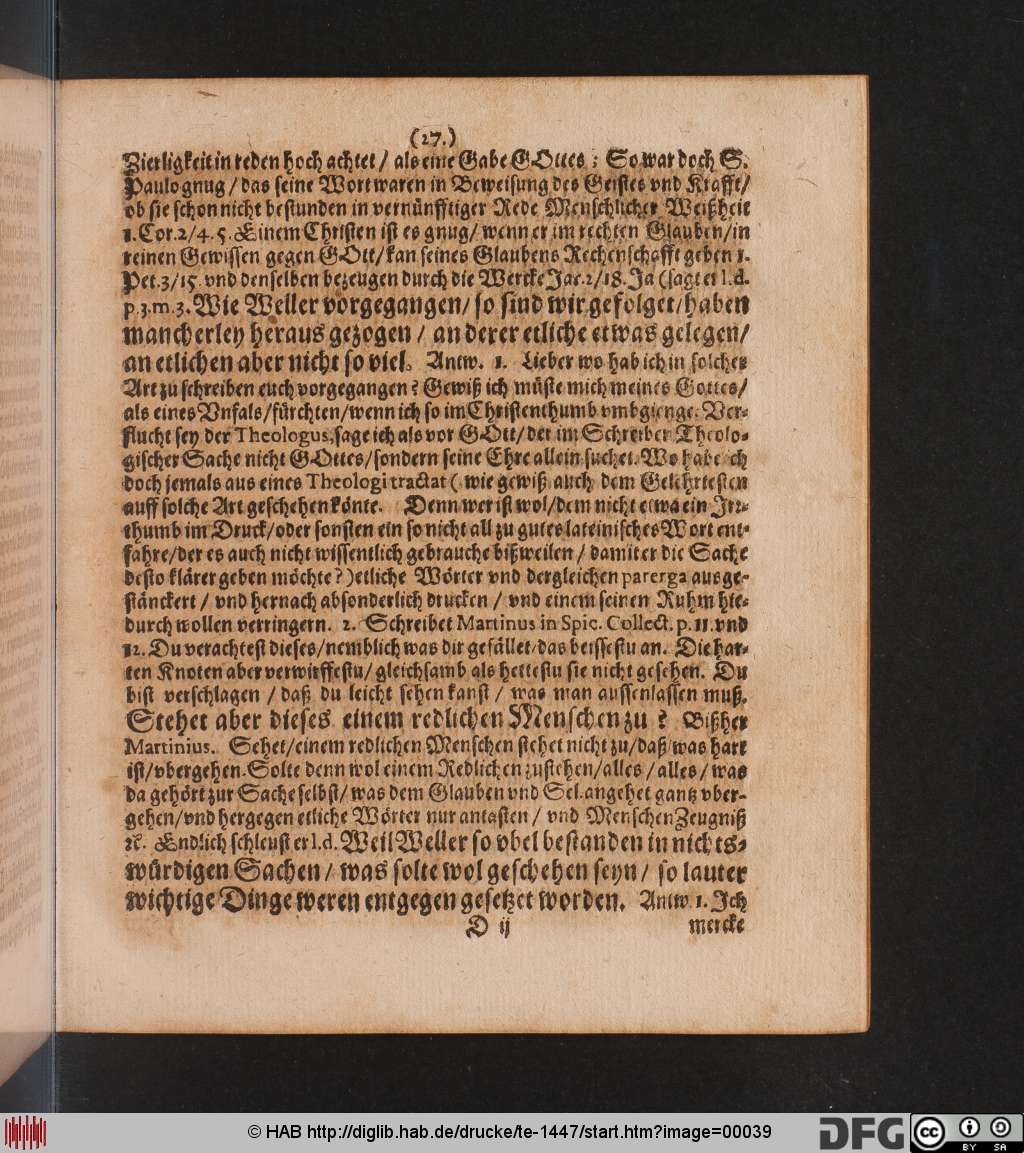 (27.)
Zierligkeit in reden hoch achtet / als eine Gabe GOttes : So war doch S.
Paulo gnug / das seine Wort waren in Beweisung des Geistes vnd Krafft /
ob sie schon nicht bestunden in vernünfftiger Rede Menschlicher Weißheit
1. Cor. 2/4. 5. Einem Christen ist es gnug / wenn er im rechten Glauben / in
reinen Gewissen gegen GOtt / kan seines Glaubens Rechenschafft geben 1.
Pet. 3/15. vnd denselben bezeugen durch die Wercke Jac. 2/18. Ja (sagt er l. d.
p. 3. m. 3. Wie Weller vorgegangen / so sind wir gefolget / haben
mancherley heraus gezogen / an derer etliche etwas gelegen /
an etlichen aber nicht so viel. Antw. 1. Lieber wo hab ich in solcher
Art zu schreiben euch vorgegangen ? Gewiß ich müste mich meines Gottes /
als eines Vnfals / fürchten / wenn ich so im Christenthumb vmbgienge. Ver-
flucht sey der Theologus, sage ich als vor GOtt / der im Schreiben Theolo-
gischer Sache nicht GOttes / sondern seine Ehre allein suchet. Wo habe ich
doch jemals aus eines Theologi tractat ( wie gewiß auch dem Gelehrtesten
auff solche Art geschehen könte. Denn wer ist wol / dem nicht etwa ein Irr-
thumb im Druck / oder sonsten ein so nicht all zu gutes lateinisches Wort ent-
fahre / der es auch nicht wissentlich gebrauche bißweilen / damit er die Sache
desto klärer geben möchte ? ) etliche Wörter vnd dergleichen parerga ausge-
stänckert / vnd hernach absonderlich drucken / vnd einem seinen Ruhm hie-
durch wollen verringern. 2. Schreibet Martinus in Spic. Collect. p. 11. vnd
12. Du verachtest dieses / nemblich was dir gefället / das beissestu an. Die har-
ten Knoten aber verwirffestu / gleichsamb als hettestu sie nicht gesehen. Du
bist verschlagen / daß du leicht sehen kanst / was man aussenlassen muß.
Stehet aber dieses einem redlichen Menschen zu ? Bißher
Martinius. Sehet / einem redlichen Menschen stehet nicht zu / daß / was hart
ist / vbergehen. Solte denn wol einem Redlichen zustehen / alles / alles / was
da gehört zur Sache selbst / was dem Glauben vnd Sel. angehet gantz vber-
gehen / vnd hergegen etliche Wörter nur antasten / vnd Menschen Zeugniß
ꝛc. Endlich schleust er l. d. Weil Weller so vbel bestanden in nichts-
würdigen Sachen / was solte wol geschehen seyn / so lauter
wichtige Dinge weren entgegen gesetzet worden. Antw. 1. Ich
D ij mercke
© HAB http://diglib.hab.de/drucke/te-1447/start.htm?image=00039
DFG cc BY SA